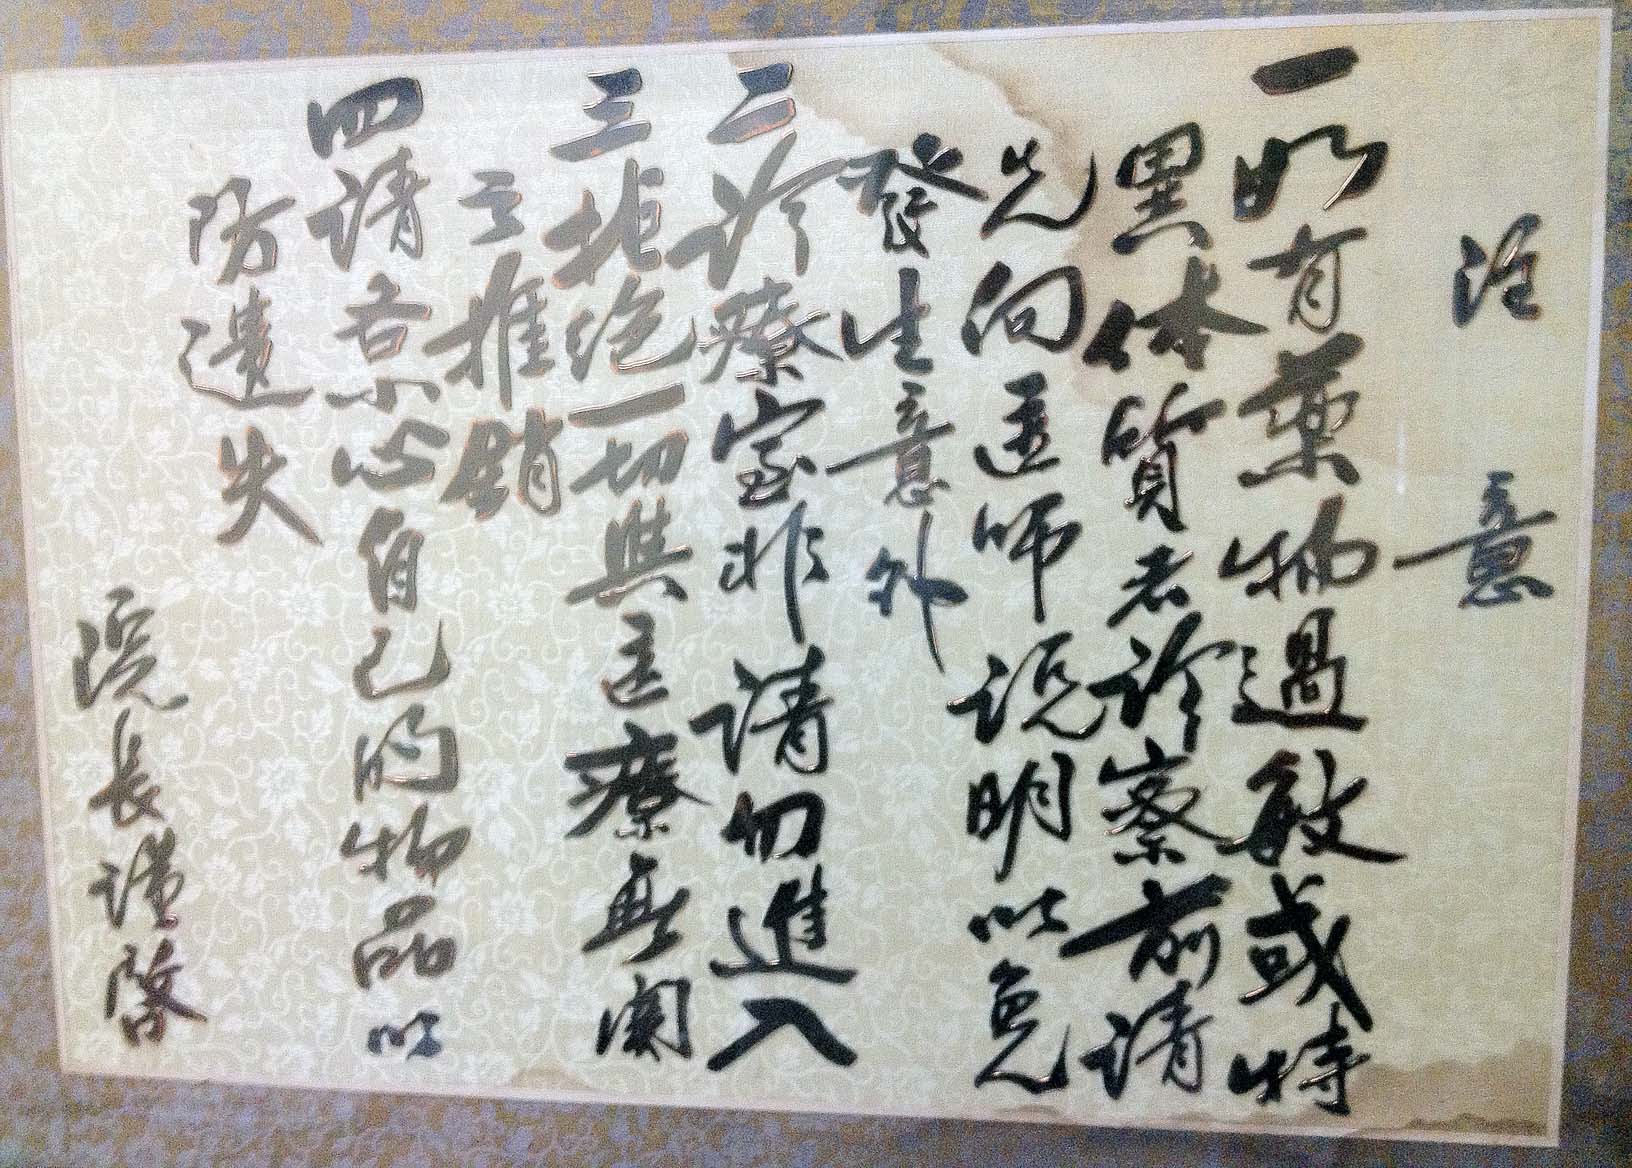 注意
一如有藥物過敏或特
異体質者診察前請
先向医師說明以免
發生意外
二診療室非請勿進入
三拒絕一切與医療無関
之推銷
四請各小心自己的物品以
防遺失
院長謹啓